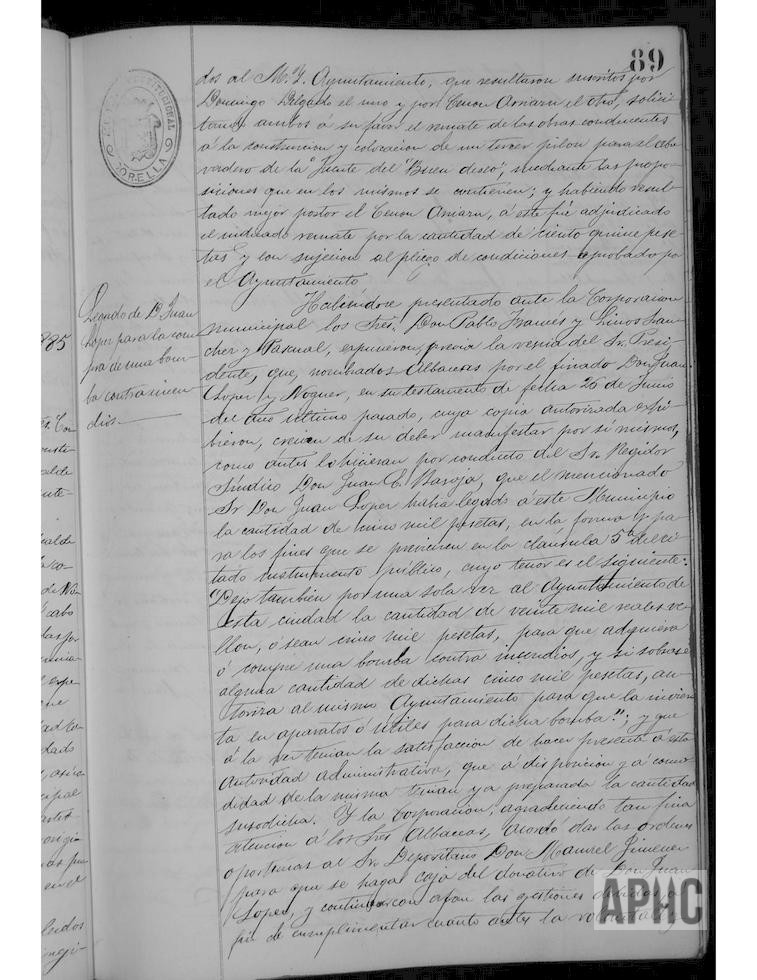 89
dos al M. Y. Ayuntamiento, que resultaron suscritos por
Domingo Delgado el uno y por Cenon Arnazu el otro, solici-
tando ambos á su favor el remate de las obras conducentes
á la construccion y colocacion de un tercer pilon para el abre-
vadero de la "Fuente del "Buen deseo", mediante las propo-
siciones que en los mismos se contienen; y habiendo resul-
tado mejor postor el Cenon, á este fué adjudicado
el indicado remate por la cantidad de ciento quince pese-
tas y con sujecion al pliego de condiciones aprobado por
el Ayuntamiento
Legado de D. Juan
Loper para la com
pra de una bom-
ba contra incen-
dios
Habiéndose presentado ante la Corporacion
municipal los Sres. Don Pablo Francés y Linos San-
chez y Pascual, expusieron, previa la venia del Sr. Presi-
dente, que, nombrados Albaceas por el finado Don Juan
Loper y Noguer, en su testamento de fecha 26 de Junio
del año último pasado, cuya copia autorizada exhi-
bieron, creian de su deber manifestar por sí mismos,
como antes lo hicieran por conducto del Sr. Regidor
Síndico Don Juan C. Baroja, que el mencionado
Sr Don Juan Loper habia legado á este Municipio
la cantidad de cinco mil pesetas, en la forma y pa-
ra los fines que se previenen en la clausula 5ª del ci-
tado instrumento público, cuyo tenor es el siguiente:
"Dejo tambien por una sola vez al Ayuntamiento de
esta ciudad la cantidad de veinte mil reales ve-
llon, ó sean cinco mil pesetas, para que adquiera
ó compre una bomba contra incendios, y si sobrase
alguna cantidad de dichas cinco mil pesetas, au-
toriza al mismo Ayuntamiento para que la invier-
ta en aparatos ó útiles para dicha bomba."; y que
á la vez tenian la satisfaccion de hacer presente á esta
Autoridad administrativa, que a disposicion y a como
didad de la misma tenian ya preparada la cantidad
susodicha. Y la Corporacion, agradeciendo tan fina
atencion á los Sres Albaceas, acordó dar las órdenes
oportunas al Sr. Depositario Don Manuel Jimenez
para que se haga cargo del donativo de Don Juan
Loper, y continuar con afan las gestiones
fin de cumplimentar cuanto antes la voluntad
APHC